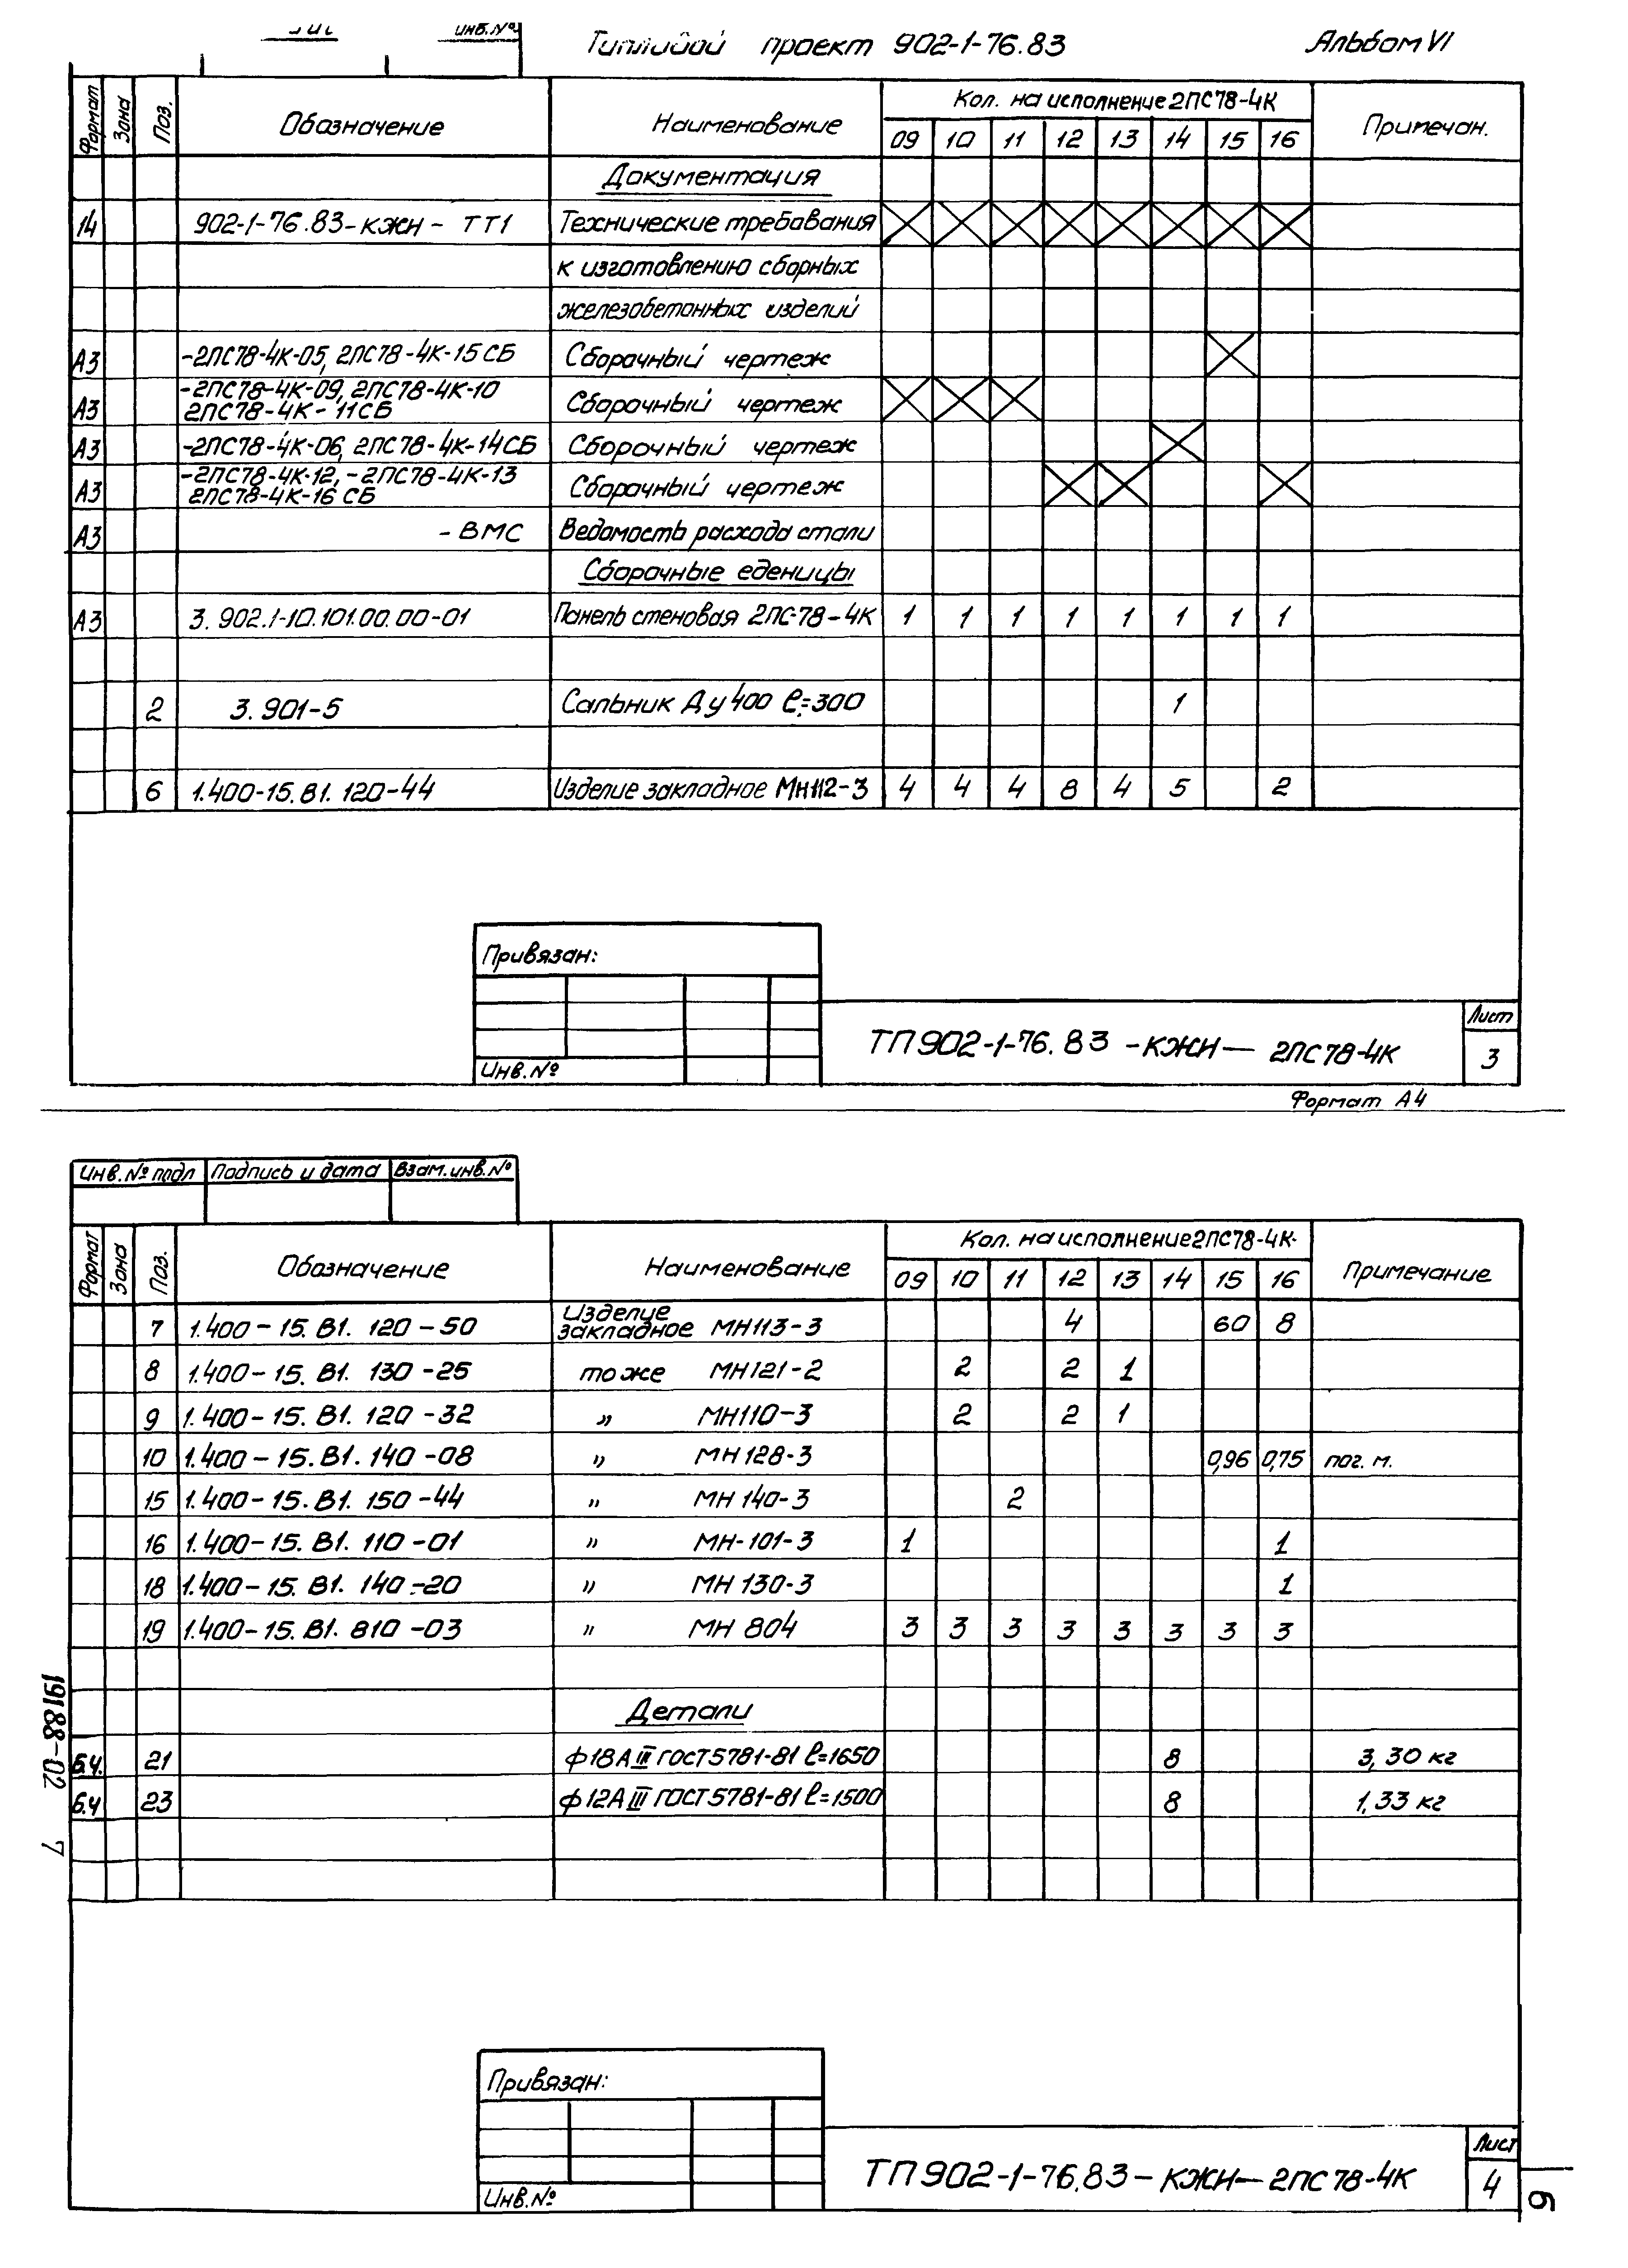 инв.№
Типовой проект 902-1-76.83 Альбом VI
Формат Зона Поз. Обозначение Наименование Кол. на исполнение 2ПС78-4К Примечан.
09 10 11 12 13 14 15 16
Документация
14 902-1-76.83-КЖН-ТТ1 Технические требования
к изготовлению сборных
железобетонных изделий
А3 -2ПС78-4К-05, 2ПС78-4К-15СБ Сборочный чертеж
-2ПС78-4К-09, 2ПС78-4К-10
А3 2ПС78-4К-11СБ Сборочный чертеж
А3 -2ПС78-4К-06, 2ПС78-4К-14СБ Сборочный чертеж
-2ПС78-4К-12, -2ПС78-4К-13
А3 2ПС78-4К-16 СБ Сборочный чертеж
А3 -ВМС Ведомость расхода стали
Сборочные еденицы
А3 3.902.1-10.101.00.00-01 Панель стеновая 2ПС-78-4К 1 1 1 1 1 1 1 1
2 3.901-5 Сальник Ду400 ℓ=300 1
6 1.400-15.В1.120-44 Изделие закладное МН112-3 4 4 4 8 4 5 2
Привязан:
Инв.№
ТП902-1-76.83-КЖН-2ПС78-4К
Лист
3
Формат А4
Инв.№ подл Подпись и дата Взам.инв.№
Формат Зона Поз. Обозначение Наименование Кол. на исполнение 2ПС78-4К- Примечание
09 10 11 12 13 14 15 16
Изделие
7 1.400-15.В1.120-50 закладное МН113-3 4 60 8
8 1.400-15.В1.130-25 то же МН121-2 2 2 1
9 1.400-15.В1.120-32 " МН110-3 2 2 1
10 1.400-15.В1.140-08 " МН128-3 0,96 0,75 пог. м.
15 1.400-15.В1.150-44 " МН140-3 2
16 1.400-15.В1.110-01 " МН-101-3 1 1
18 1.400-15.В1.140-20 " МН130-3 1
19 1.400-15.В1.810-03 " МН 804 3 3 3 3 3 3 3 3
Детали
Б.Ч. 21 ф18АIII ГОСТ5781-81 ℓ=1650 8 3,30 кг
Б.Ч 23 ф12АIII ГОСТ5781-81 ℓ=1500 8 1,33 кг
19188-02 7
Привязан:
Инв.№
ТП902-1-76.83-КЖН-2ПС78-4К
Лист
4
6